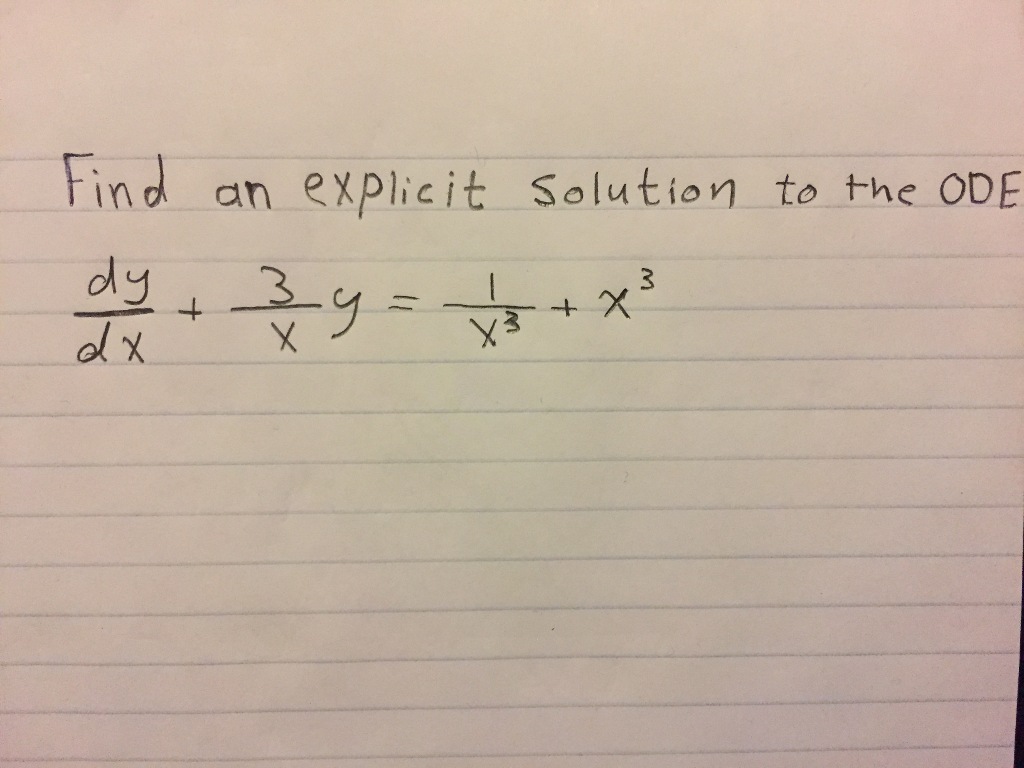 Find an explicit solution to the ODE
dy/dx + 3/x y = 1/x³ + x³